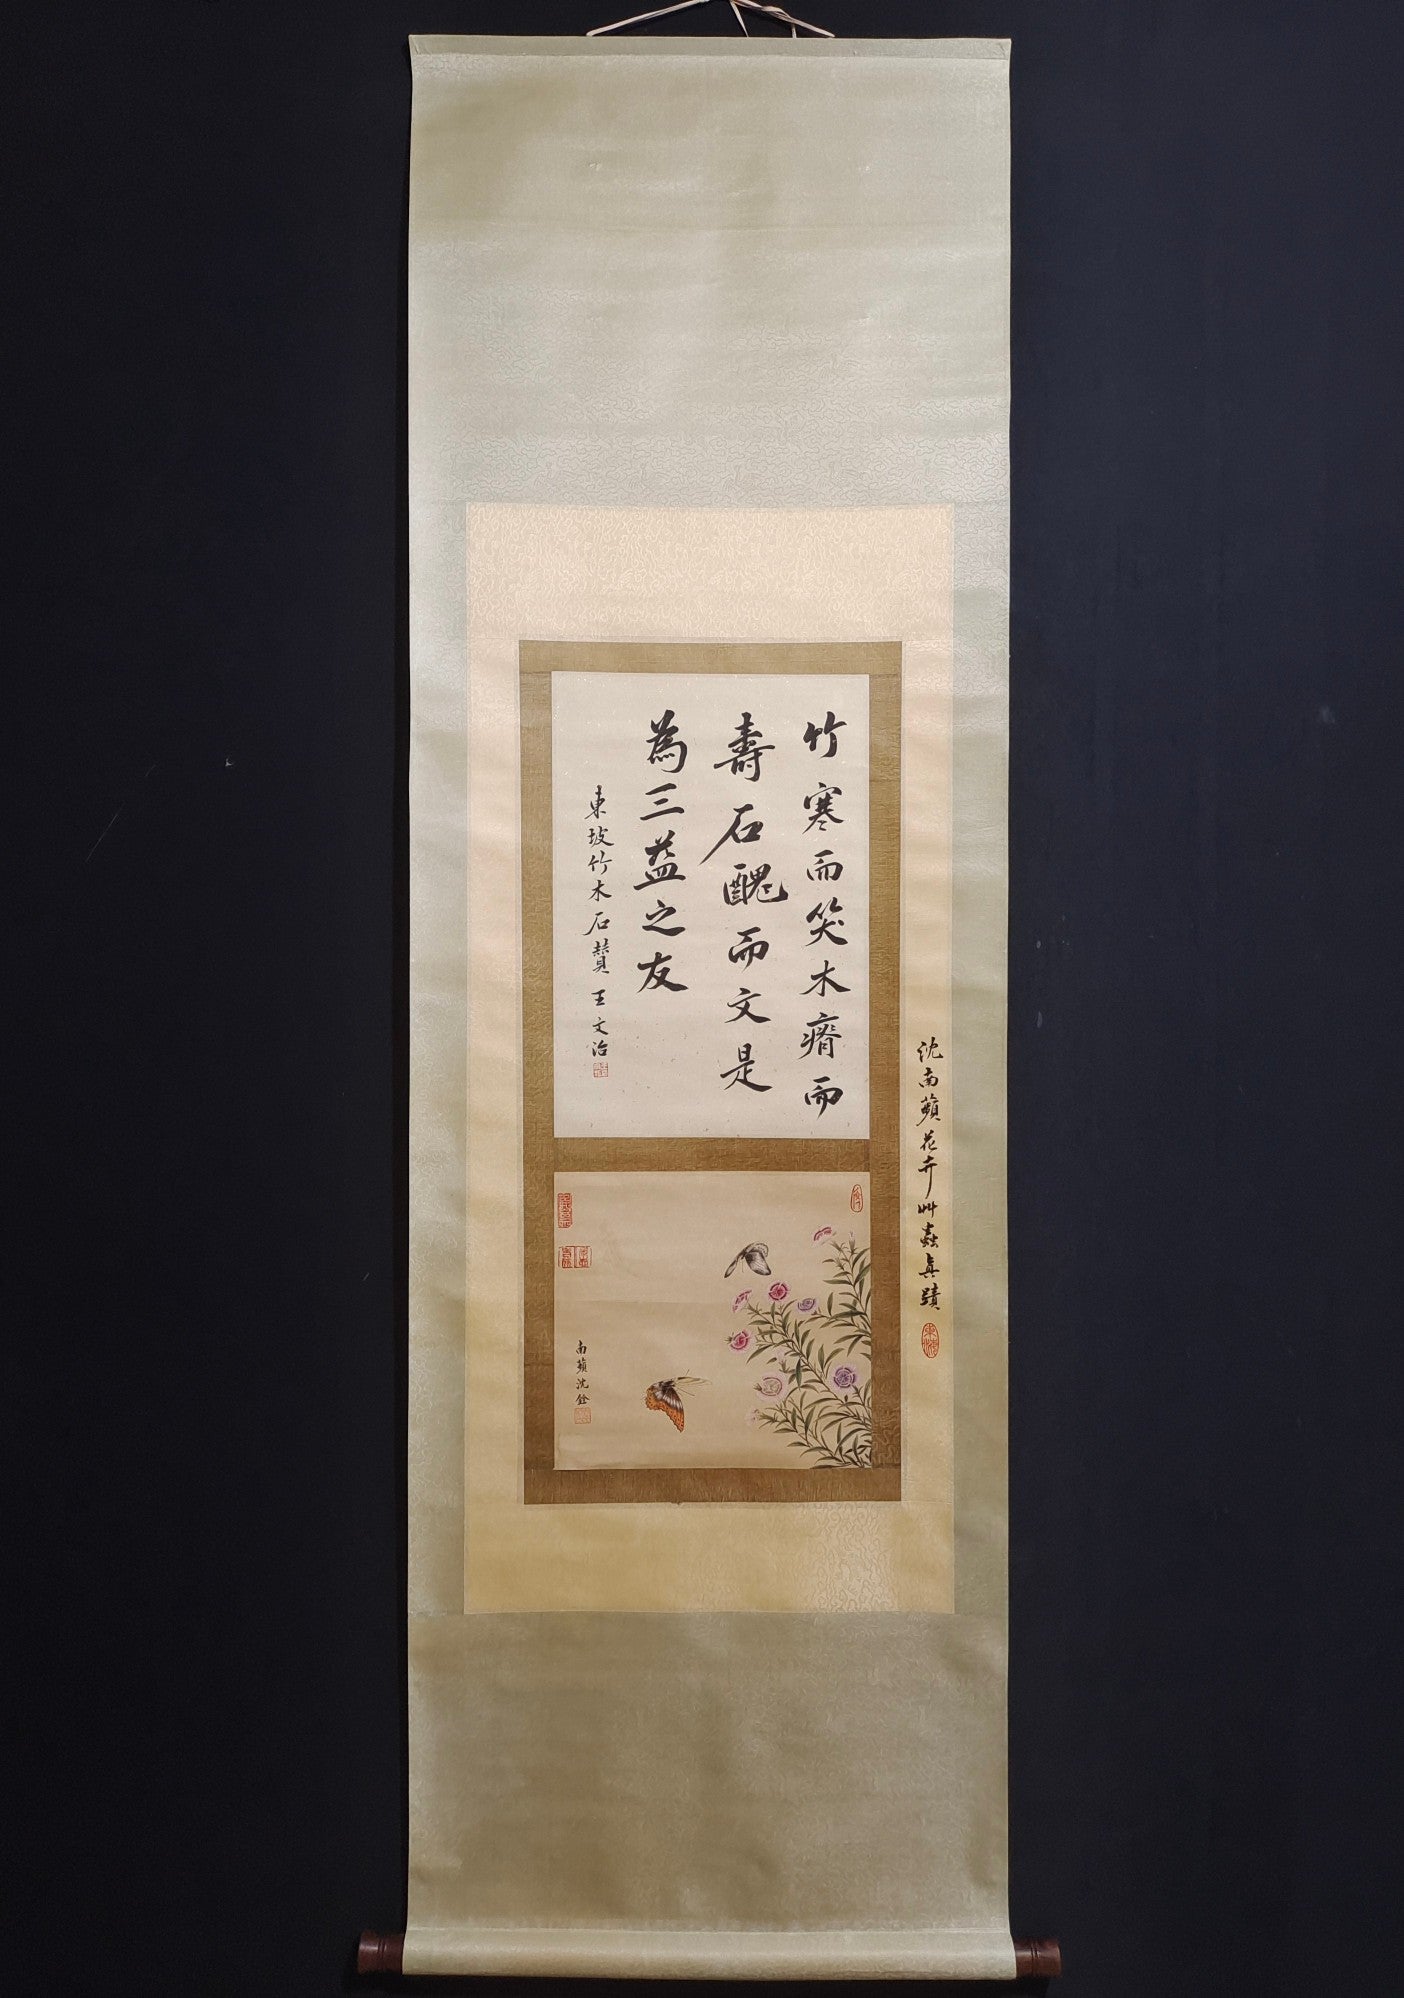 竹寒而笑木瘠而
壽石醜而文是
為三益之友
東坡竹木石贊 王文治
沈南蘋花卉艸蟲真蹟
南蘋沈銓